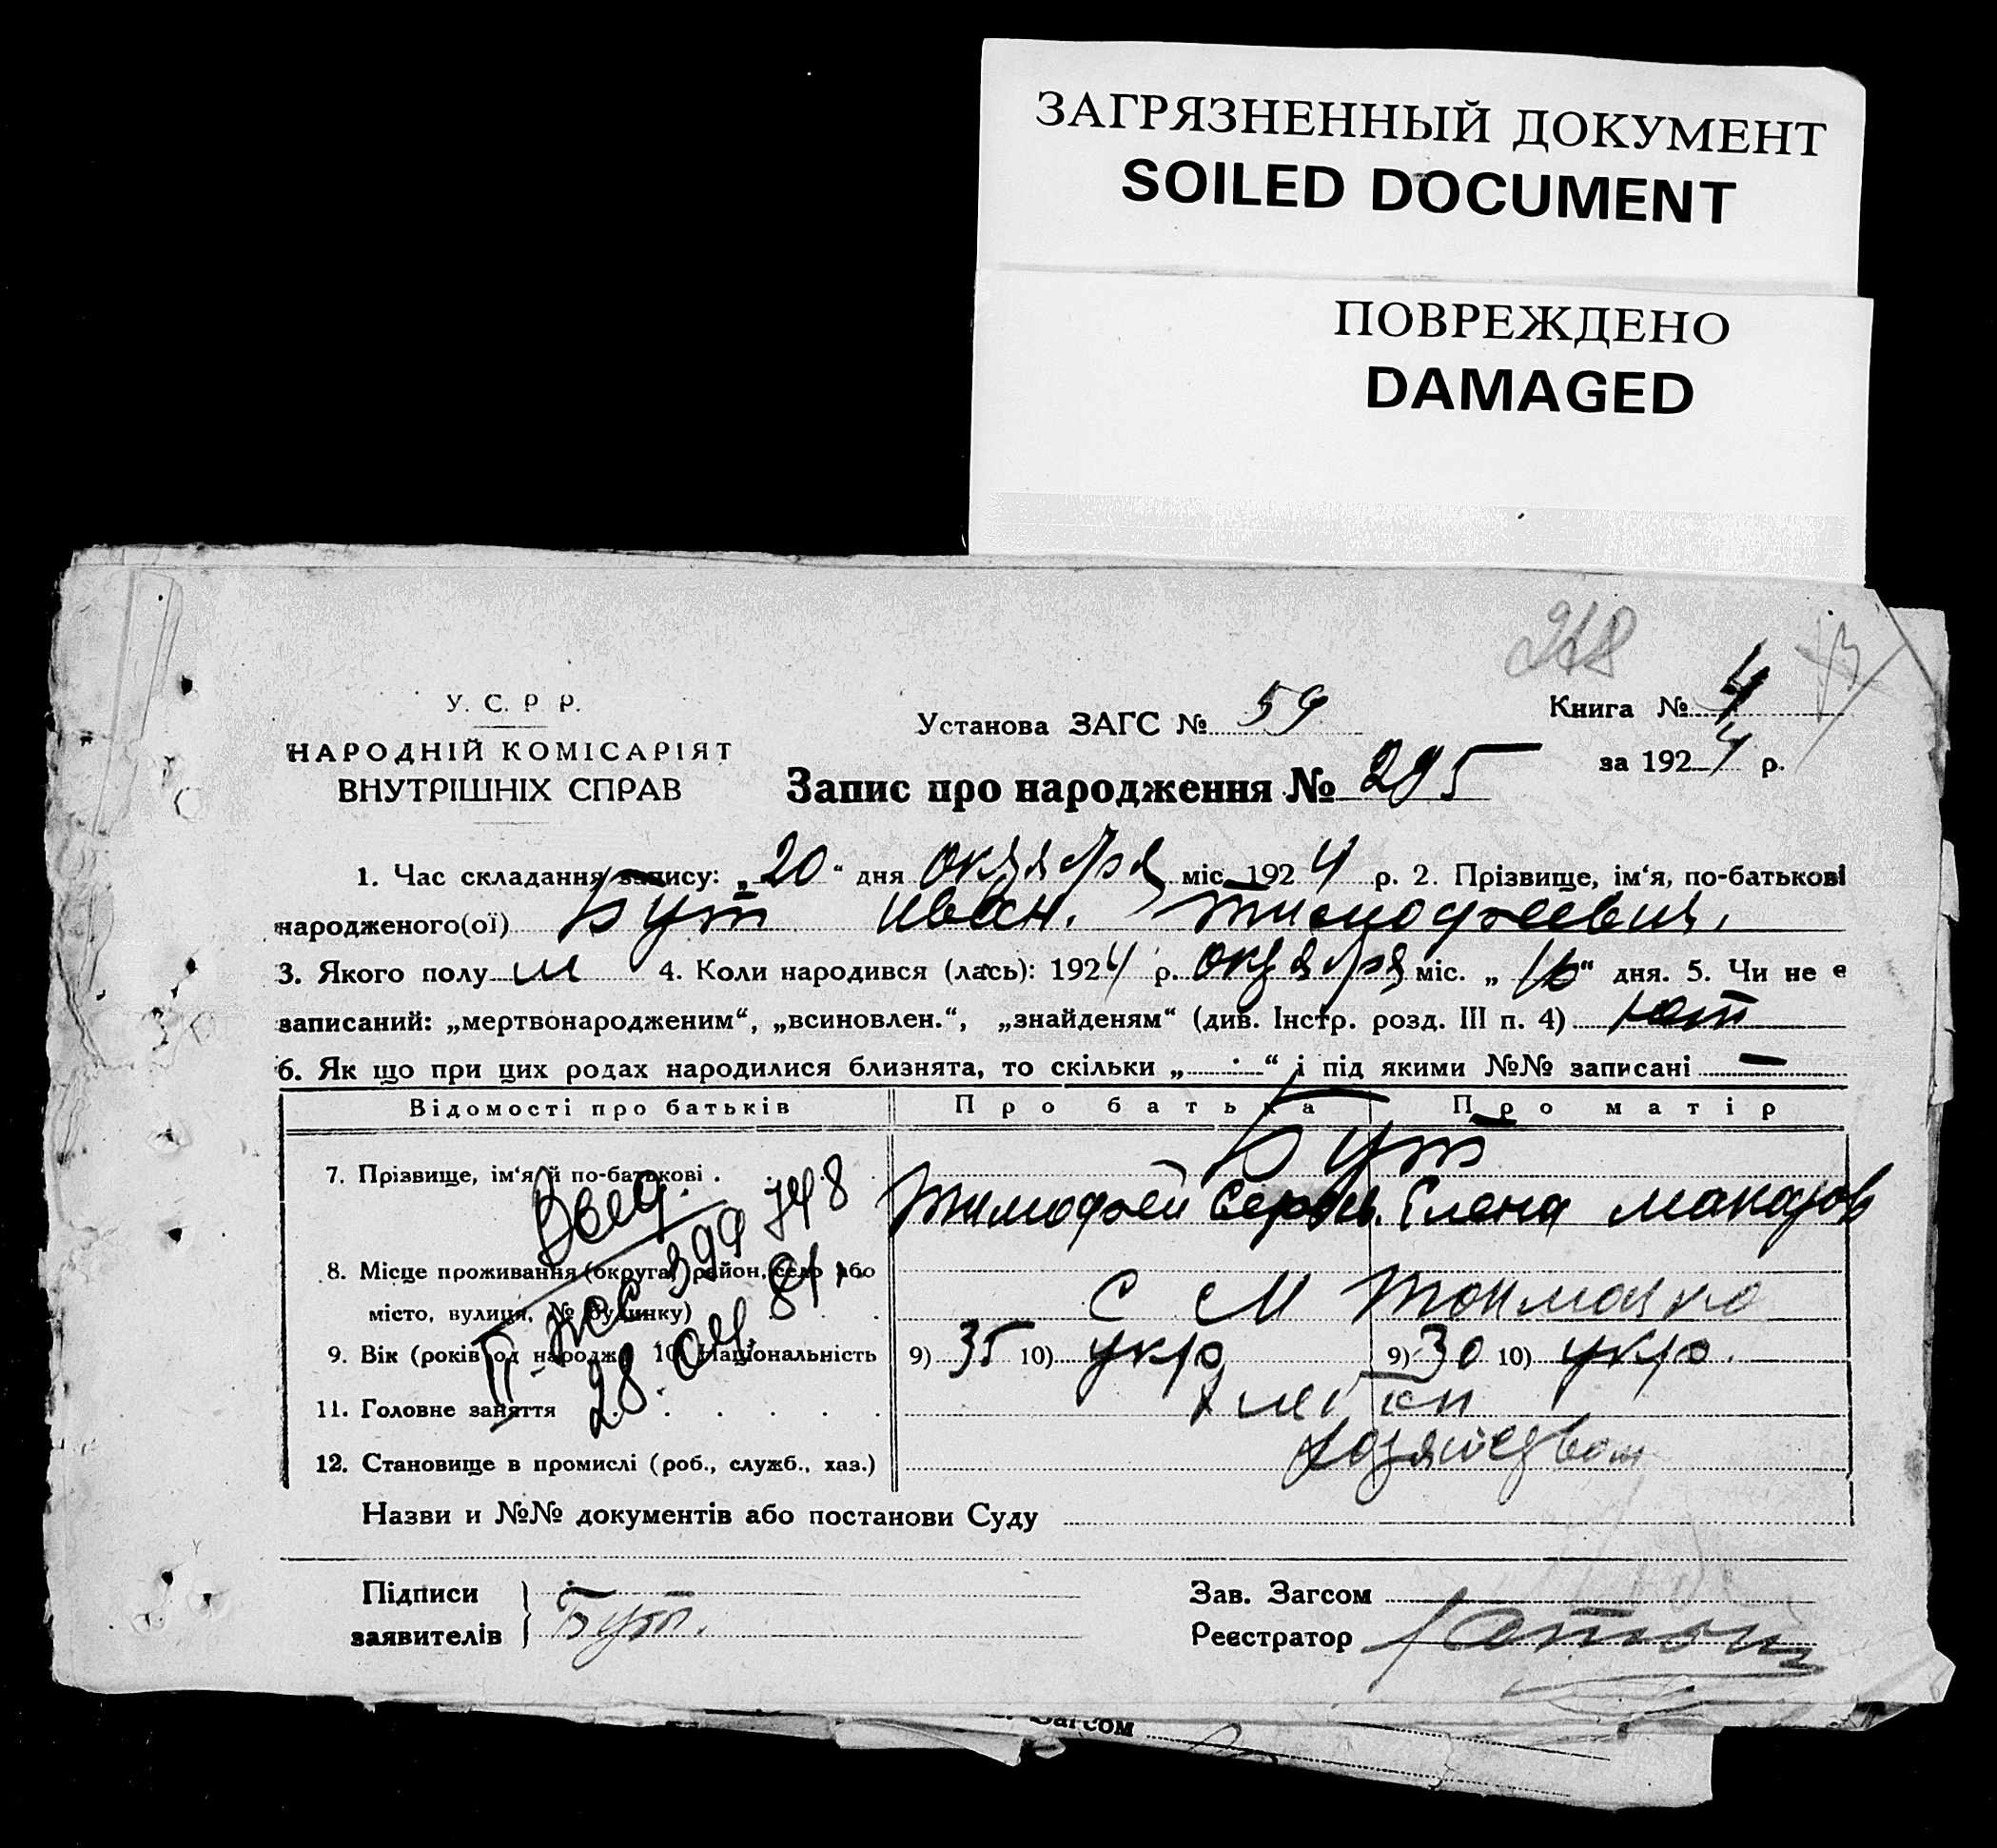 ЗАГРЯЗНЕННЫЙ ДОКУМЕНТ
SOILED DOCUMENT
ПОВРЕЖДЕНО
DAMAGED
У. С. Р Р.
НАРОДНІЙ КОМІСАРІЯТ
ВНУТРІШНІХ СПРАВ
Установа ЗАГС № 59
Книга № 4
за 1924 р.
Запис про народження № 295
1. Час складання запису: „20“ дня октября міс. 1924 р. 2. Прізвище, ім‘я, по-батькові
народженого(ої) Бут Иван. Тимофеевич.
3. Якого полу м 4. Коли народився (лась): 1924 р. октября міс. „16“ дня. 5. Чи не є
записаний: „мертвонародженим“, „всиновлен.“, „знайденям“ (див. Інстр. розд. III п. 4) нет
6. Як що при цих родах народилися близнята, то скільки „ “ і під якими №№ записані —
Відомості про батьків Про батька Про матір
Бут
7. Прізвище, ім‘я й по-батькові . Тимофей Сергеев. Елена Макаров
8. Місце проживання (округа, район, село або
місто, вулиця, № будинку) С М Токмачка
9. Вік (років од народж.) 10) Національність 9) 35 10) укр 9) 30 10) укр.
11. Головне заняття
12. Становище в промислі (роб., служб., хаз.) хозяйством
Назви и №№ документів або постанови Суду
Підписи
заявителів Бут.
Зав. Загсом
Реєстратор
Загсом